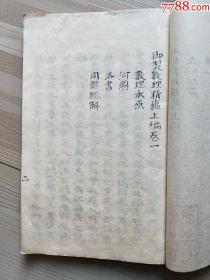 7788.com
御製數理精蘊上編卷一
數理本原
河圖
洛書
周髀經解
二